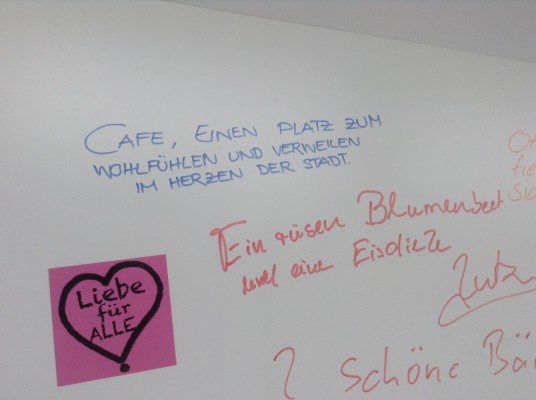 CAFE, EINEN PLATZ ZUM
WOHLFÜHLEN UND VERWEILEN
IM HERZEN DER STADT.
Ein riesen Blumenbeet
und eine Eisdiele
Liebe
für
ALLE
? Schöne